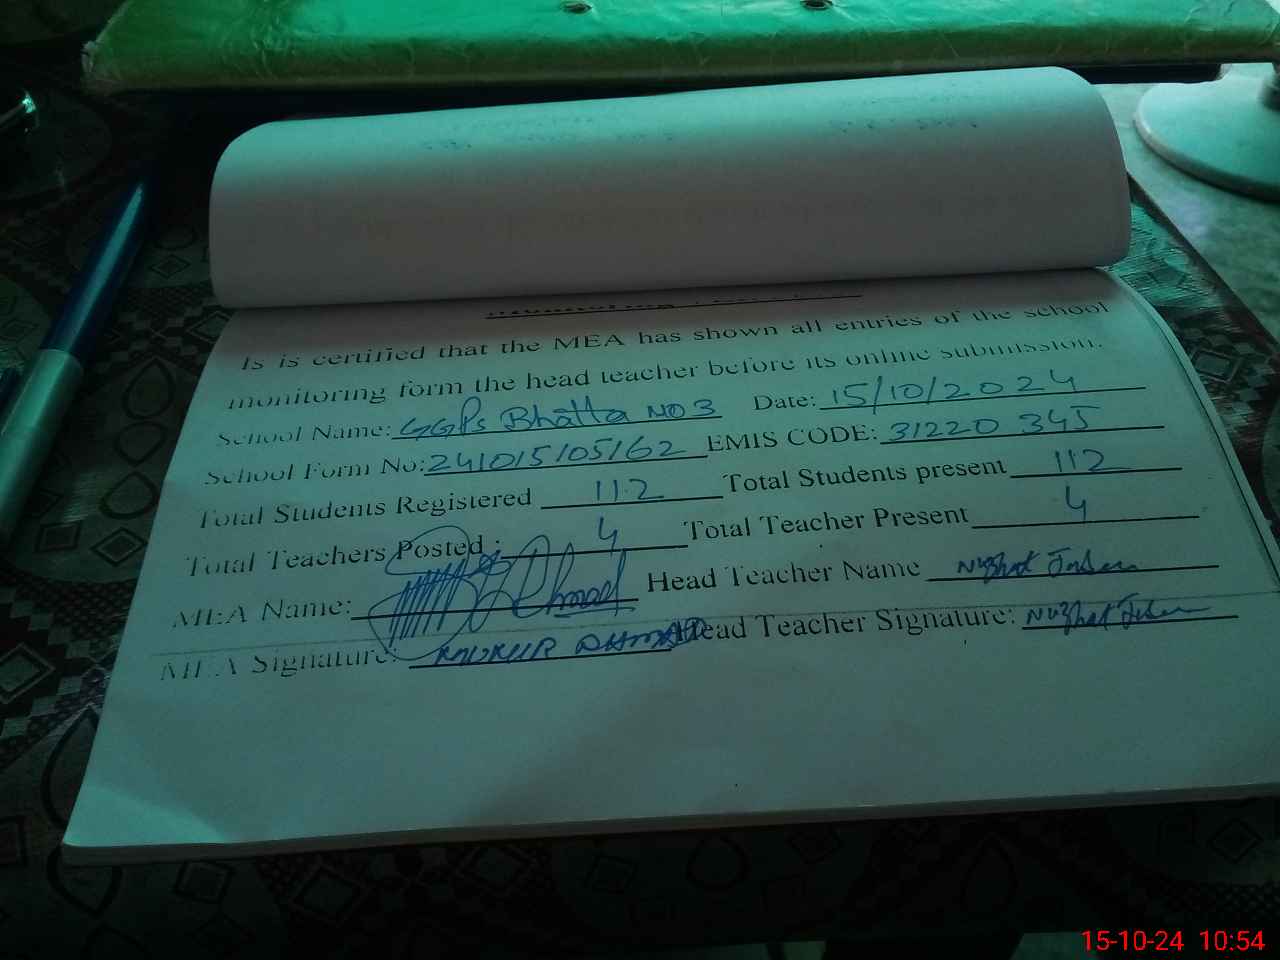 Is is certified that the MEA has shown all entries of the school
monitoring form the head teacher before its online submission.
School Name: GGPS Bhatta NO 3 Date: 15/10/2024
School Form No: 241015/05/62 EMIS CODE: 31220 345
Total Students Registered 112 Total Students present 112
Total Teachers Posted : 4 Total Teacher Present 4
MEA Name: Ahmad Head Teacher Name Nuzhat
MEA Signature: AHMAD Head Teacher Signature: Nuzhat
15-10-24 10:54